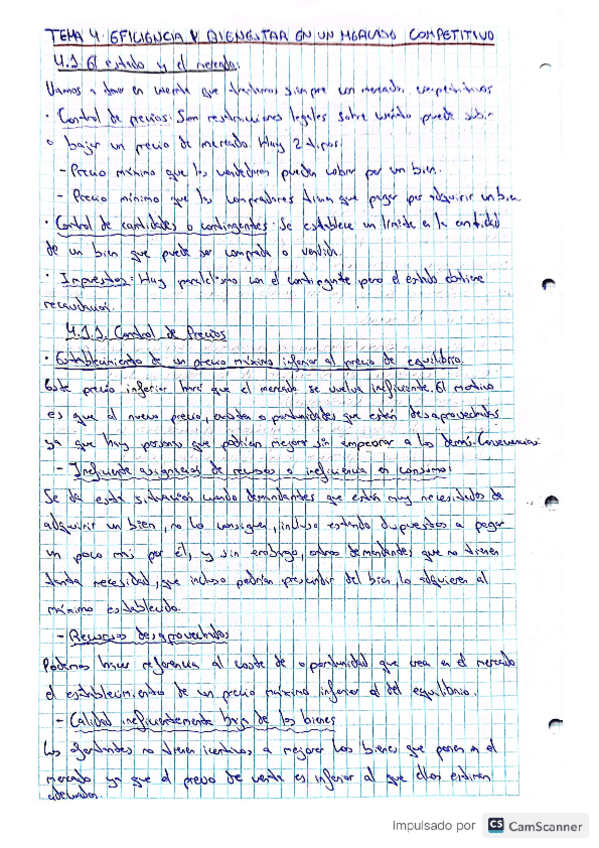 TEMA 4. EFICIENCIA Y BIENESTAR EN UN MERCADO COMPETITIVO
4.1 El estado y el mercado:
Vamos a tener en cuenta que tratamos siempre con mercados competitivos
· Control de precios: Son restricciones legales sobre cuánto puede subir
o bajar un precio de mercado. Hay 2 tipos:
- Precio máximo que los vendedores pueden cobrar por un bien.
- Precio mínimo que los compradores tienen que pagar por adquirir un bien.
· Control de cantidades o contingentes: Se establece un límite en la cantidad
de un bien que puede ser comprada o vendida.
· Impuestos: Hay paralelismo con el contingente pero el estado obtiene
recaudación.
4.1.1. Control de Precios
· Establecimiento de un precio máximo inferior al precio de equilibrio.
Este precio inferior hará que el mercado se vuelva ineficiente. El motivo
es que al nuevo precio, existen oportunidades que están desaprovechadas
ya que hay personas que podrían mejorar sin empeorar a los demás. Consecuencias:
- Ineficiente asignación de recursos o ineficiencia en consumo:
Se da esta situación cuando demandantes que están muy necesitados de
adquirir un bien, no lo consiguen, incluso estando dispuestos a pagar
un poco más por él, y sin embargo, otros demandantes que no tienen
tanta necesidad, que incluso podrían prescindir del bien, lo adquieren al
máximo establecido.
- Recursos desaprovechados
Podemos hacer referencia al coste de oportunidad que crea en el mercado
el establecimiento de un precio máximo inferior al del equilibrio.
- Calidad ineficientemente baja de los bienes
Los ofertantes no tienen incentivos a mejorar los bienes que ponen en el
mercado ya que el precio de venta es inferior al que ellos estiman
adecuados.
Impulsado por CS CamScanner